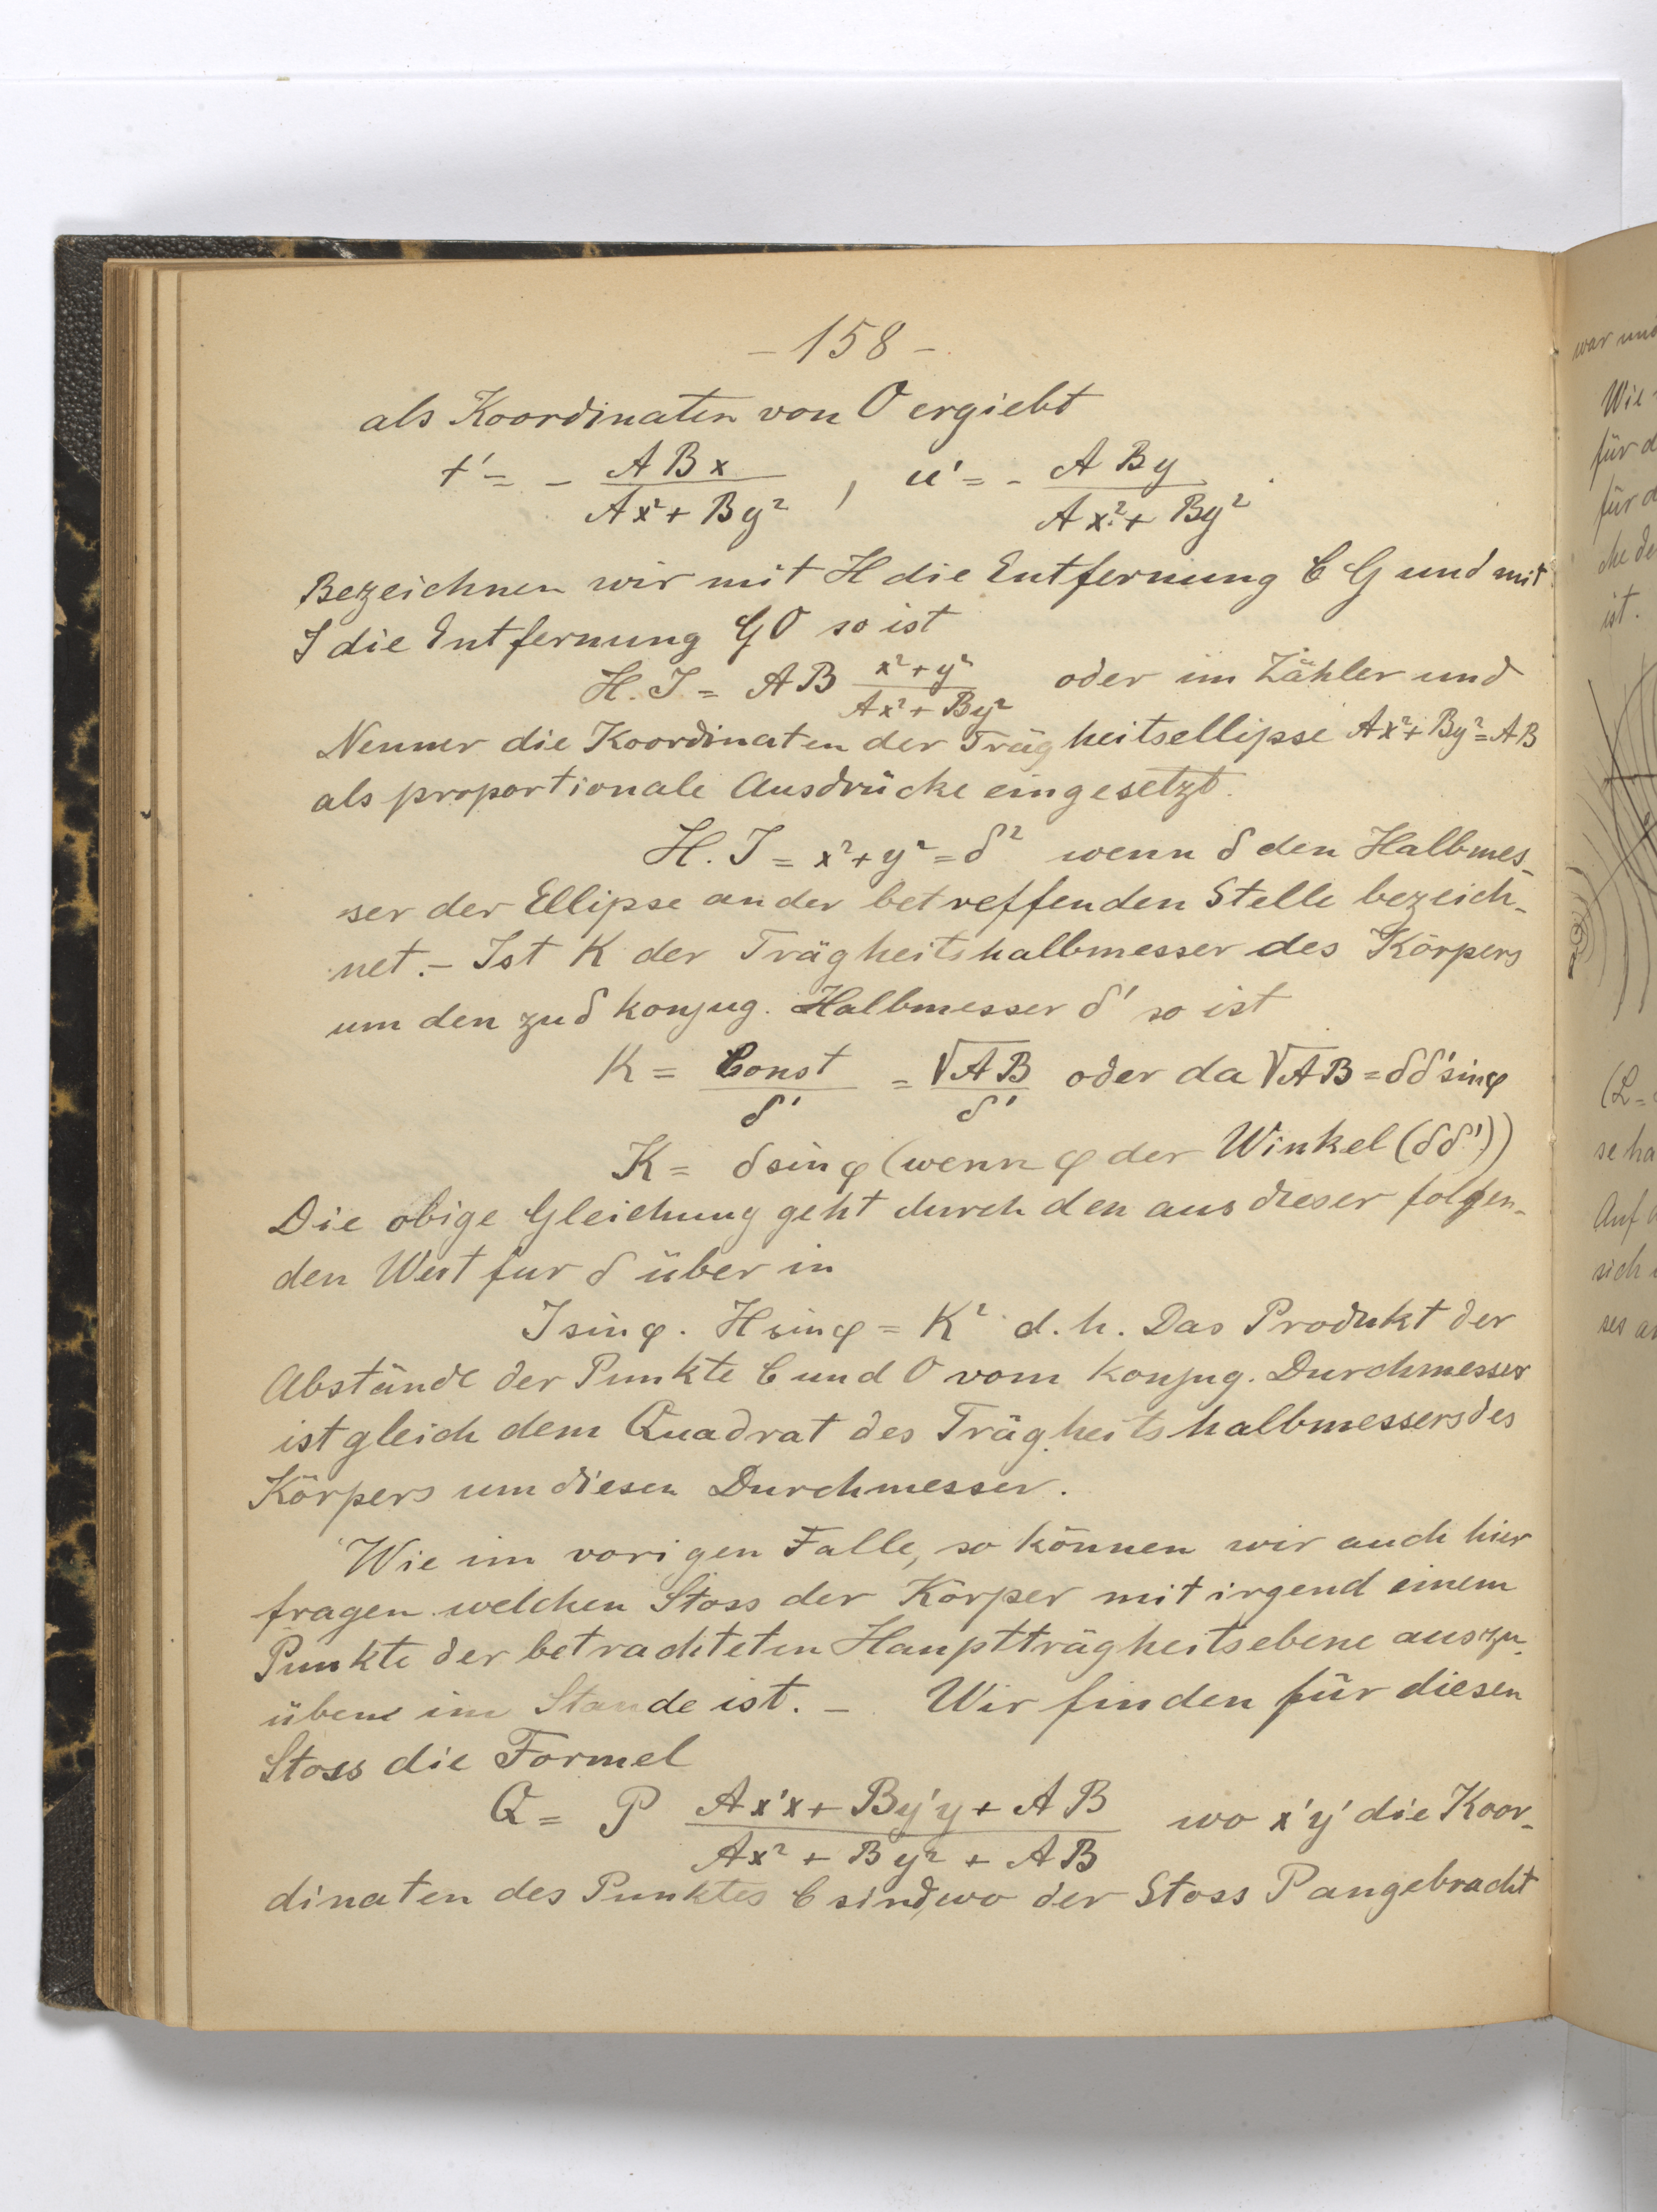 - 158 -
als Koordinaten von O ergiebt
t' = - ABx / Ax² + By² , u' = - ABy / Ax² + By² .
Bezeichnen wir mit H die Entfernung CG und mit
J die Entfernung GO so ist
H. J = AB x² + y² / Ax² + By² oder im Zähler und
Nenner die Koordinaten der Trägheitsellipse Ax² + By² = AB
als proportionale Ausdrücke eingesetzt.
H. J = x² + y² = δ² wenn δ den Halbmes-
ser der Ellipse an der betreffenden Stelle bezeich-
net. - Ist K der Trägheitshalbmesser des Körpers
um den zu δ konjug. Halbmesser δ' so ist
K = Const / δ' = √AB / δ' oder da √AB = δδ' sin φ
K = δ sin φ (wenn φ der Winkel (δδ'))
Die obige Gleichung geht durch den aus dieser folgen-
den Wert fur δ über in
J sin φ . H sin φ = K² d. h. Das Produkt der
Abstände der Punkte C und O vom konjug. Durchmesser
ist gleich dem Quadrat des Trägheitshalbmessers des
Körpers um diesen Durchmesser.
Wie im vorigen Falle, so können wir auch hier
fragen welchen Stoss der Körper mit irgend einem
Punkte der betrachteten Hauptträgheitsebene auszu-
üben im Stande ist. - Wir finden für diesen
Stoss die Formel
Q = P Ax'x + By'y + AB / Ax² + By² + AB wo x'y' die Koor-
dinaten des Punktes C sind, wo der Stoss P angebracht
war und
Wie
für d
für d
che de
ist.
(L =
se ha
Auf
sich
ses an